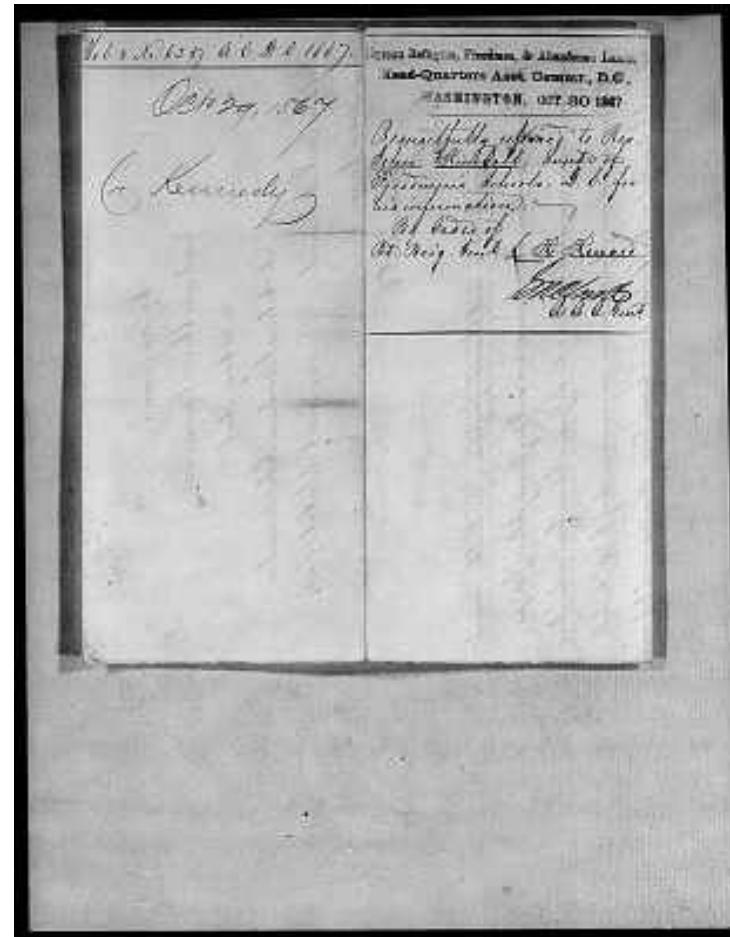 A.C. D.C. 1867.
Oct 29, 1867
Kennedy
Bureau Refugees, Freedmen, & Abandoned Lands,
Head-Quarters Asst. Commr., D.C.,
WASHINGTON, OCT 30 1867
Respectfully to Rev
John Kimball, Supt. of
Schools, D.C. for
his information.
By Order of
Bt. Brig. Genl. C. H. Howard
A. A. A. Genl